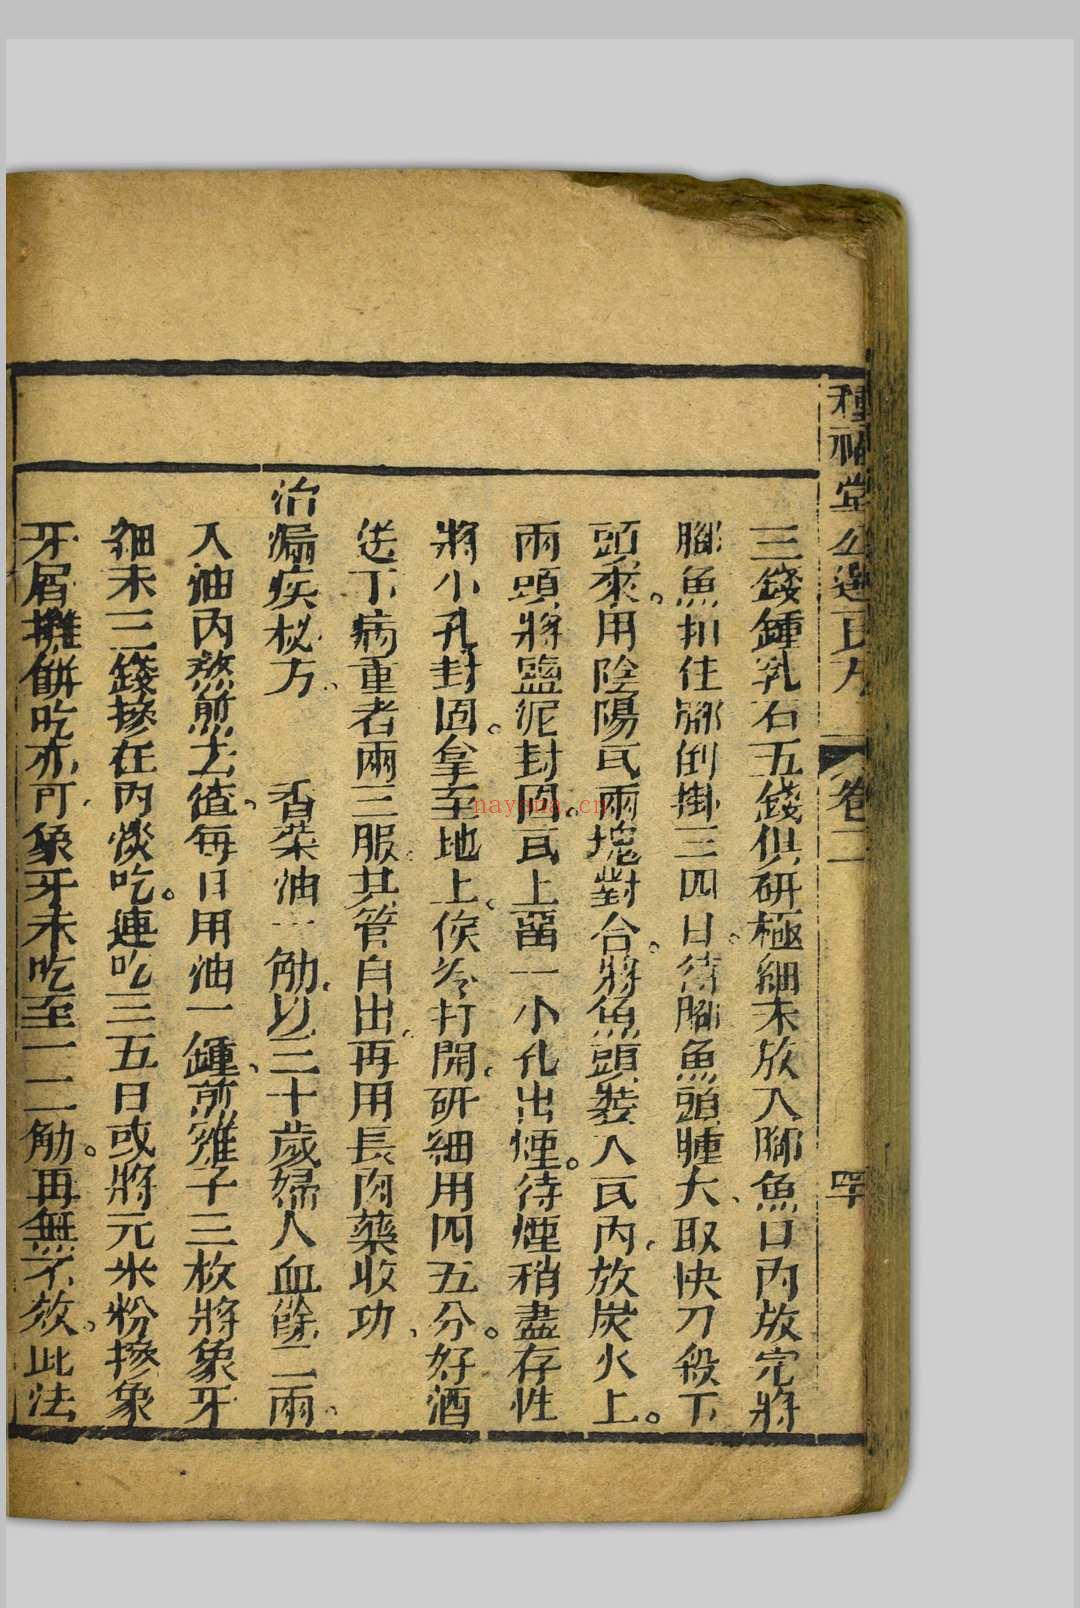 種福堂公選良方 卷二 四十
三錢鍾乳石五錢俱研極細末放入腳魚口內放完將
腳魚扣住腳倒掛三四日待腳魚頭腫大取快刀殺下
頭來用陰陽瓦兩塊對合將魚頭裝入瓦內放炭火上
兩頭將鹽泥封固瓦上留一小孔出煙待煙稍盡存性
將小孔封固拿至地上候冷打開研細用四五分好酒
送下病重者兩三服其管自出再用長肉藥收功
治漏疾秘方 香菜油一觔以二十歲婦人血餘二兩
入油內熬煎去渣每日用油一鍾煎雞子三枚將象牙
細末三錢摻在內淡吃連吃三五日或將元米粉摻象
牙屑攤餅吃亦可象牙末吃至一二觔再無不效此法
nayona.cn